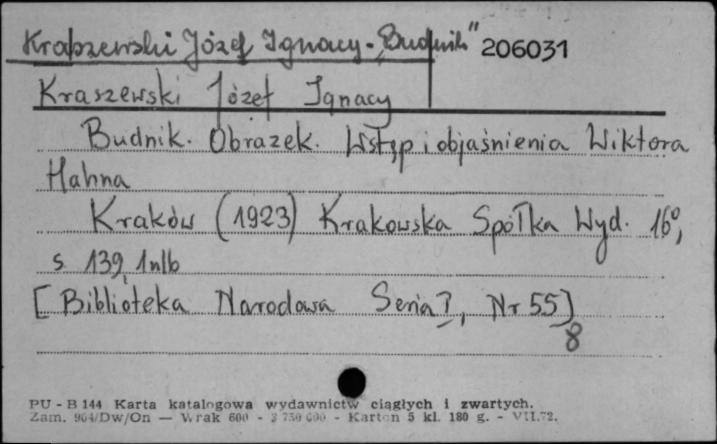 Kraszewski Józef Ignacy - „Budnik" 206031
Kraszewski Józef Ignacy
Budnik. Obrazek. Wstęp i objaśnienia Wiktora
Hahna
Kraków (1923) Krakowska Spółka Wyd. 16°,
s. 139, 1 nlb
[Biblioteka Narodowa Seria I, Nr 55]
8
PU - B 144 Karta katalogowa wydawnictw ciągłych i zwartych.
Zam. 904/Dw/On — Wrak 600 - 3 750 000 - Karton 5 kl. 180 g. - VII.72.